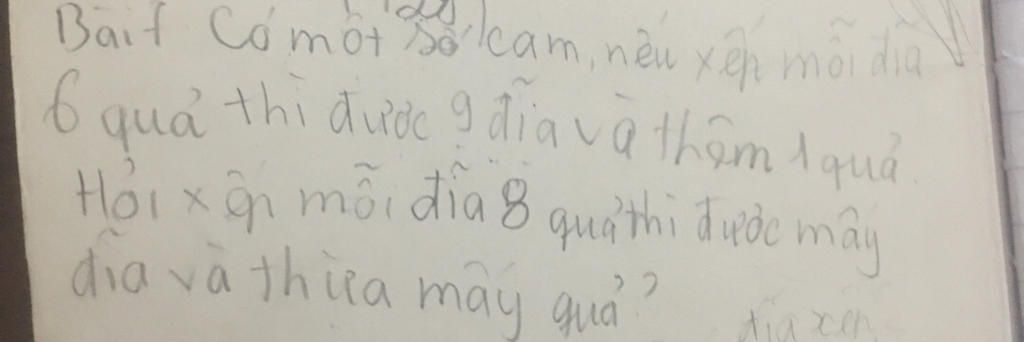 Bài 1 Có một số cam, nếu xếp mỗi đĩa
6 quả thì được 9 đĩa và thêm 1 quả.
Hỏi xếp mỗi đĩa 8 quả thì được mấy
đĩa và thừa mấy quả?
đĩa xếp